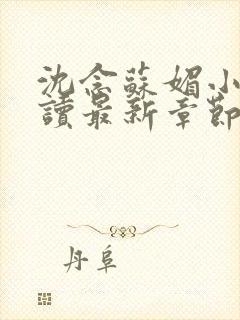 沈念蘇媚小
讀最新章節
丹阜